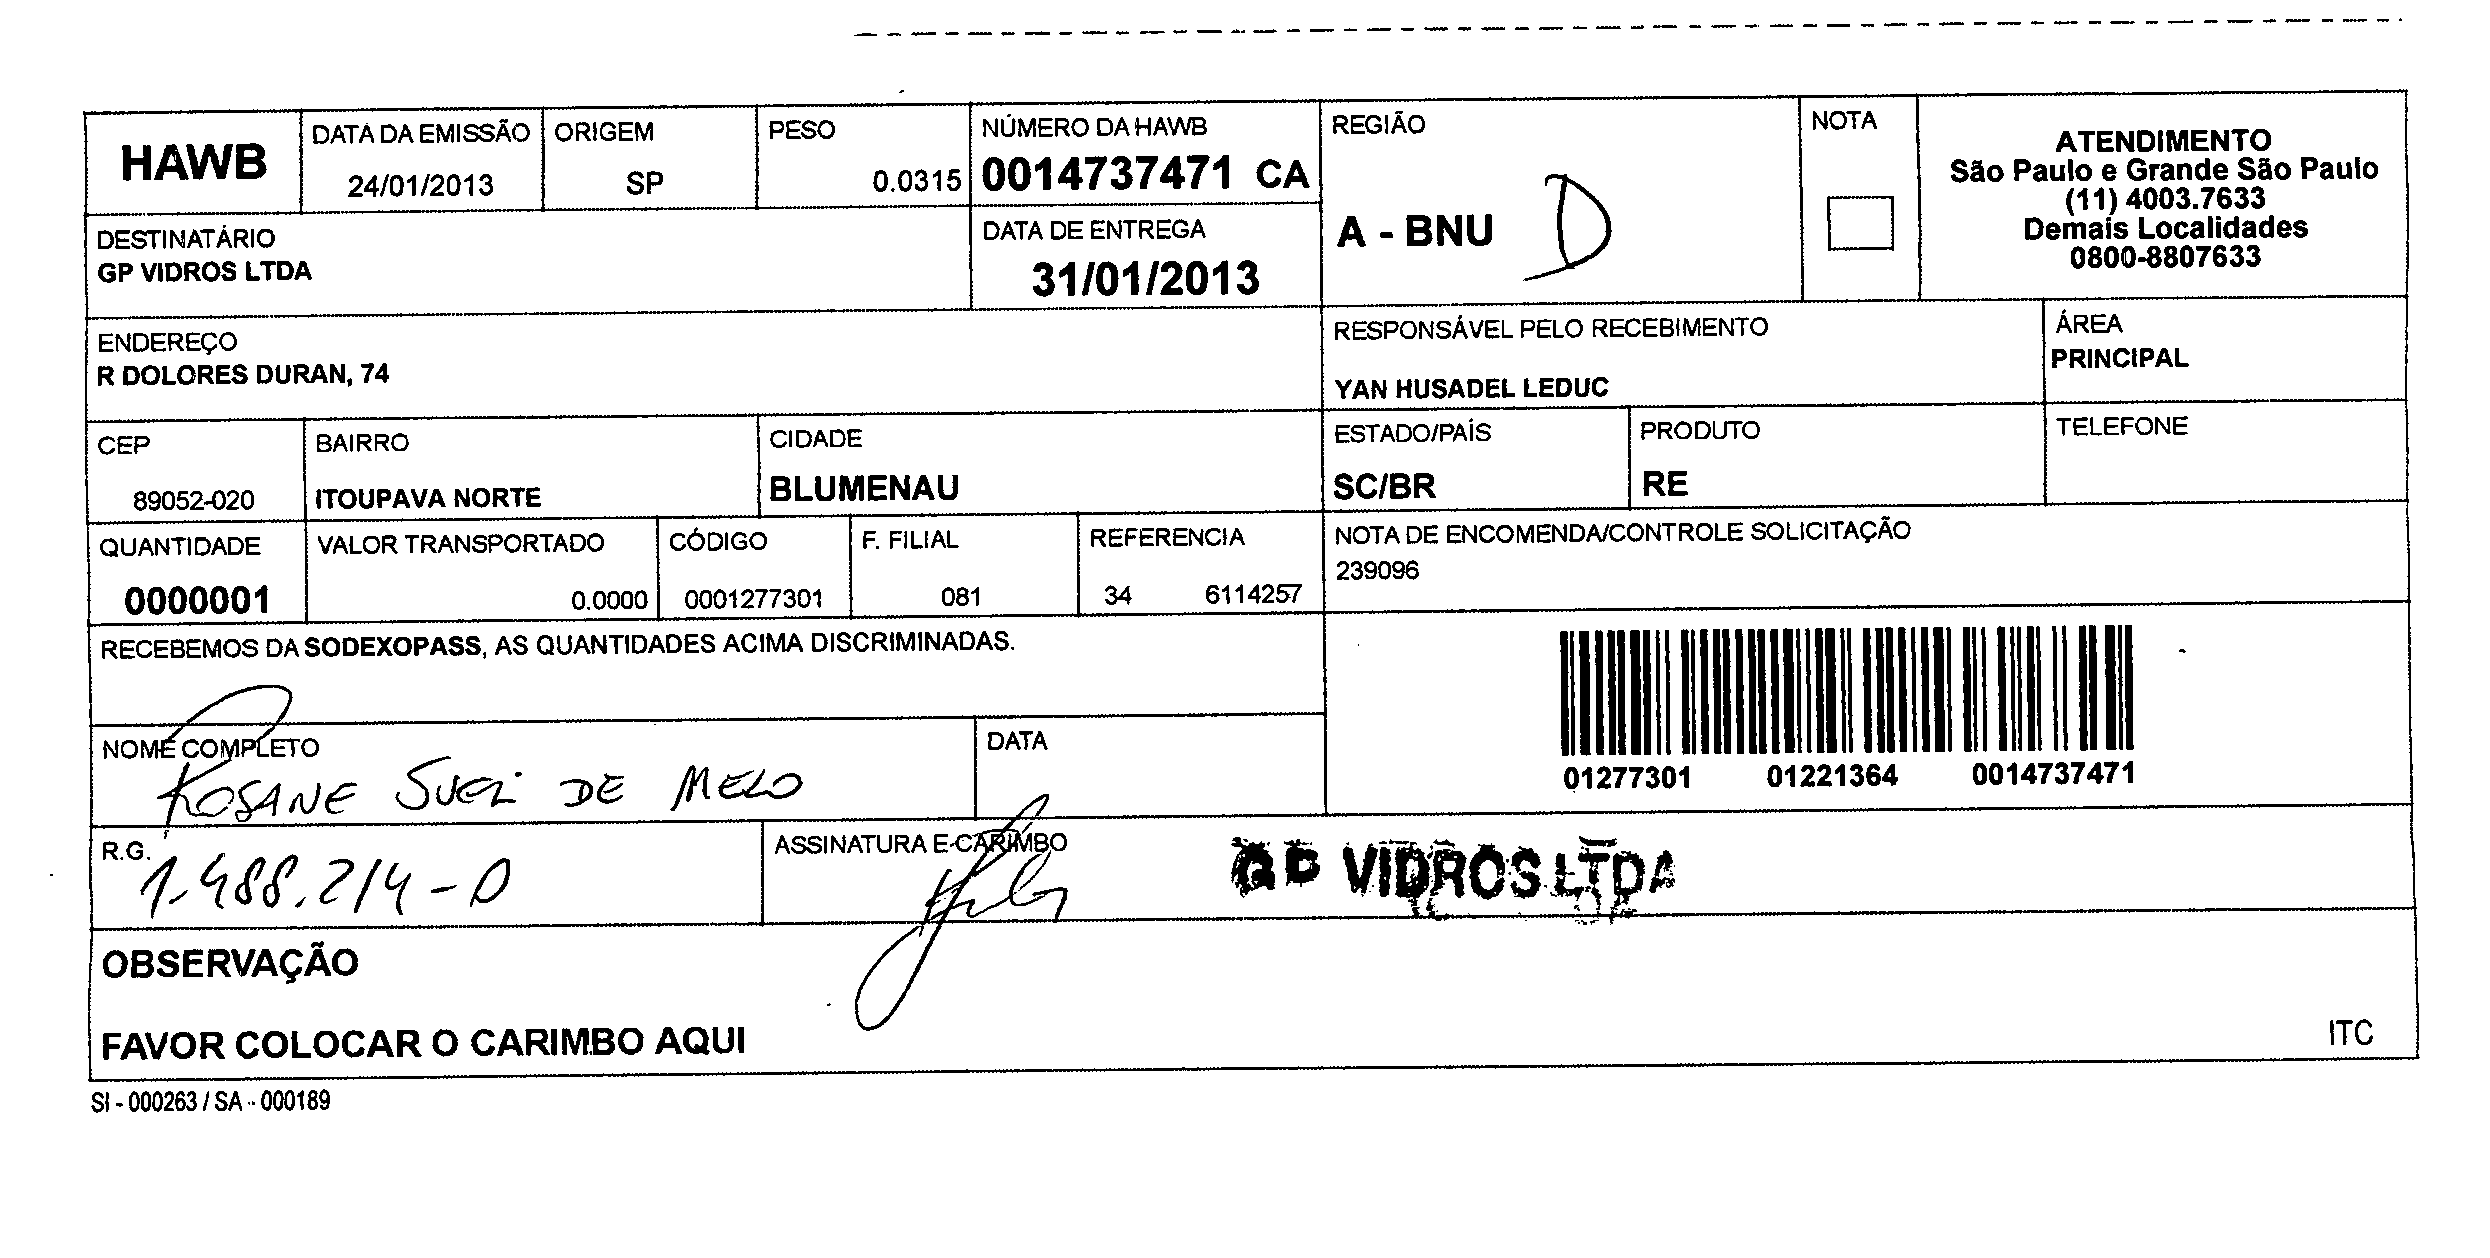 HAWB
DATA DA EMISSÃO
24/01/2013
ORIGEM
SP
PESO
0.0315
NÚMERO DA HAWB
0014737471 CA
REGIÃO
A - BNU D
NOTA
ATENDIMENTO
São Paulo e Grande São Paulo
(11) 4003.7633
Demais Localidades
0800-8807633
DESTINATÁRIO
GP VIDROS LTDA
DATA DE ENTREGA
31/01/2013
ENDEREÇO
R DOLORES DURAN, 74
RESPONSÁVEL PELO RECEBIMENTO
YAN HUSADEL LEDUC
ÁREA
PRINCIPAL
CEP
89052-020
BAIRRO
ITOUPAVA NORTE
CIDADE
BLUMENAU
ESTADO/PAÍS
SC/BR
PRODUTO
RE
TELEFONE
QUANTIDADE
0000001
VALOR TRANSPORTADO
0.0000
CÓDIGO
0001277301
F. FILIAL
081
REFERENCIA
34 6114257
NOTA DE ENCOMENDA/CONTROLE SOLICITAÇÃO
239096
RECEBEMOS DA SODEXOPASS, AS QUANTIDADES ACIMA DISCRIMINADAS.
01277301 01221364 0014737471
NOME COMPLETO
ROSANE SUELI DE MELO
DATA
R.G.
1.488.214-0
ASSINATURA E CARIMBO
GP VIDROS LTDA
OBSERVAÇÃO
FAVOR COLOCAR O CARIMBO AQUI
ITC
SI - 000263 / SA - 000189